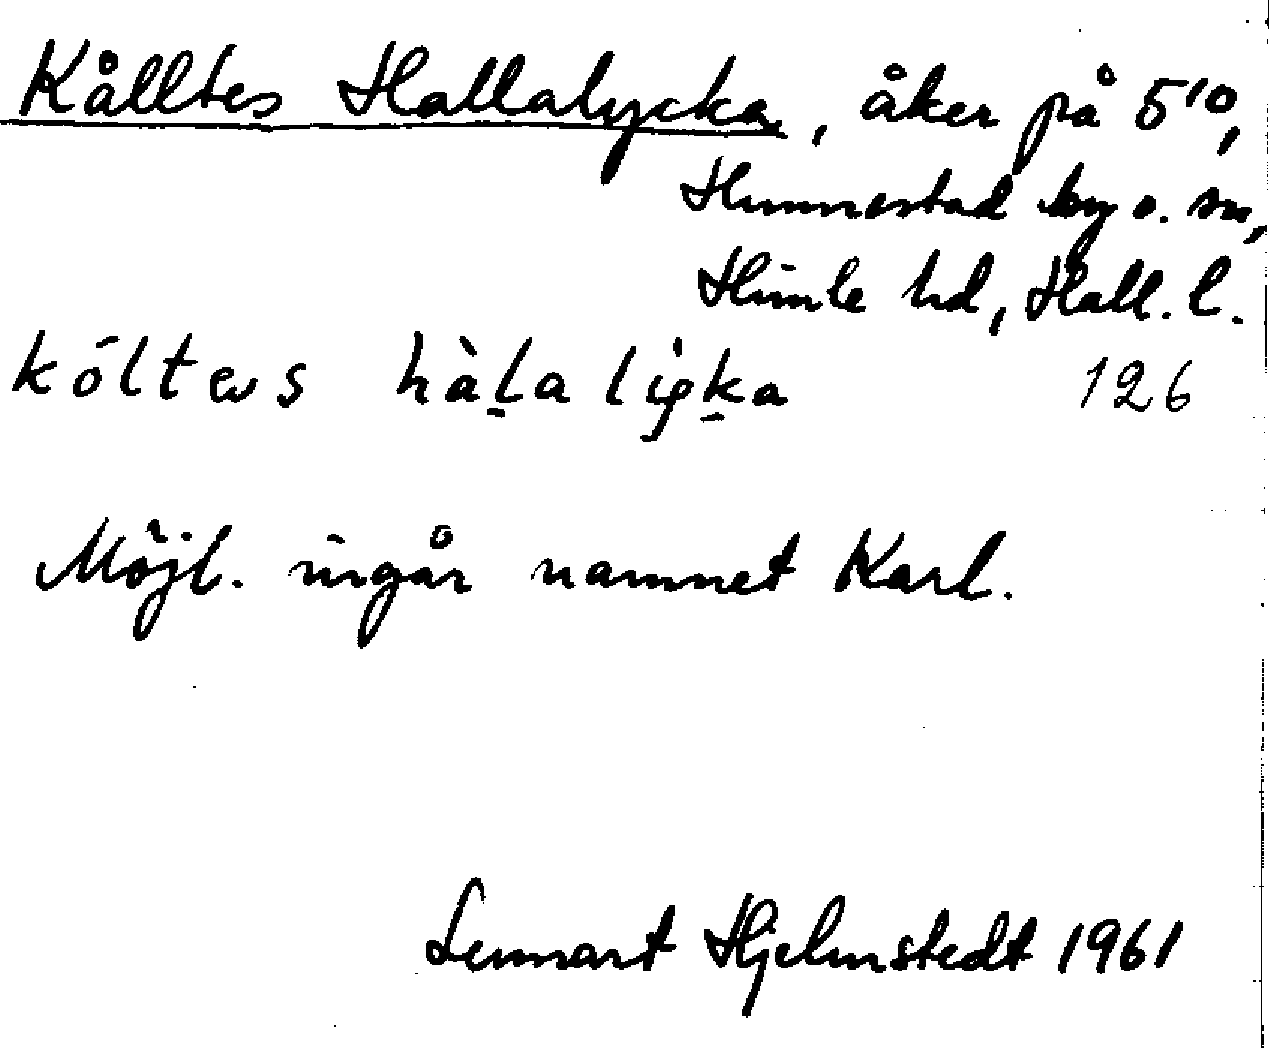 Kålltes Hallalycka, åker på 5¹⁰,
Hunnestad by o. sn,
Himle hd, Hall. l.
126
Möjl. ingår namnet Karl.
Lennart Hjelmstedt 1961